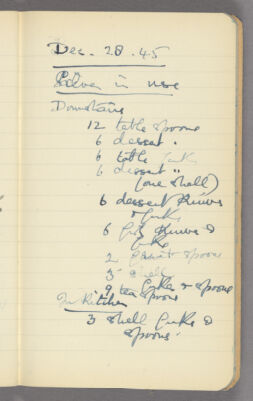 Dec. 28. 45
Silver in use
Downstairs
12 table spoons
6 dessert "
6 table forks
6 dessert "
(one shell)
6 dessert knives
& forks
6 fish knives &
forks
2 spoons
3 shell
forks & spoons
9 tea spoons
In Kitchen
3 shell forks &
spoons.